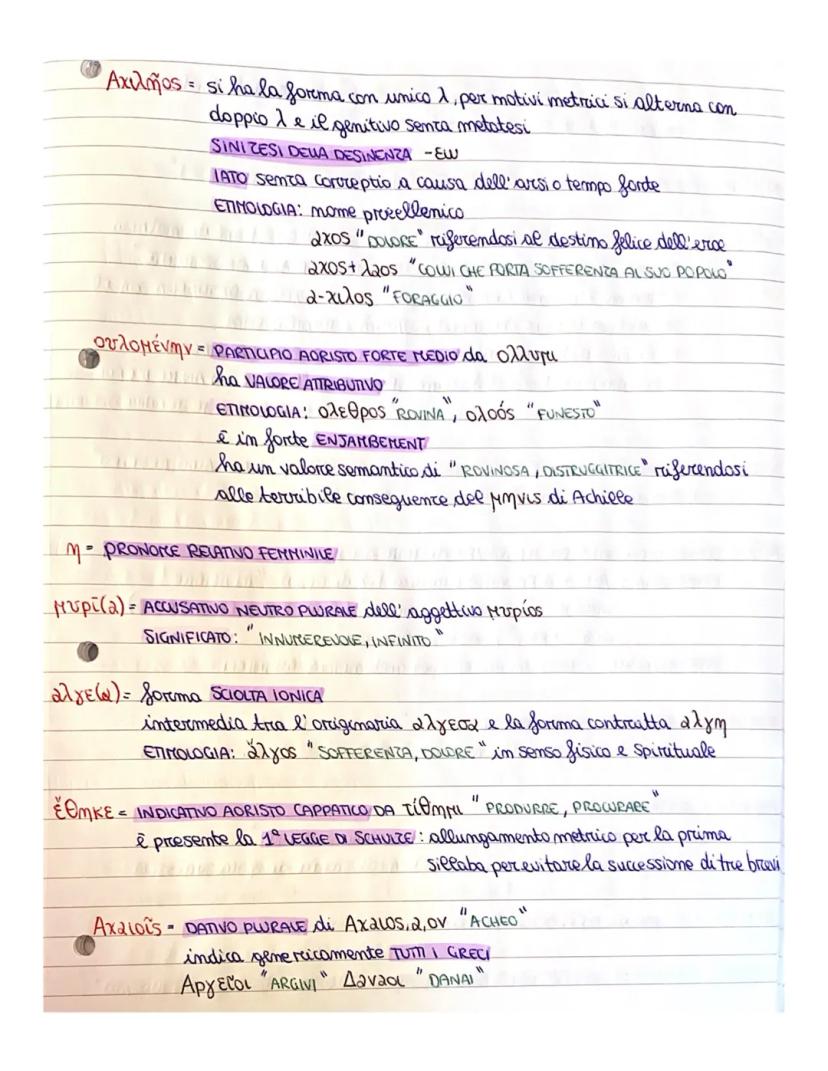 Αχιλῆος = si ha la forma con unico λ, per motivi metrici si alterna con
doppio λ e il genitivo senza metatesi
SINIZESI DELLA DESINENZA -εω
IATO senza correptio a causa dell'arsi o tempo forte
ETIMOLOGIA: nome preellenico
αχος "DOLORE" riferendosi al destino felice dell'eroe
αχος+λαος "COLUI CHE PORTA SOFFERENZA AL SUO POPOLO"
α-χιλος "FORAGGIO"
ουλομένην = PARTICIPIO AORISTO FORTE MEDIO da ολλυμι
ha VALORE ATTRIBUTIVO
ETIMOLOGIA: ολεθρος "ROVINA", ολοός "FUNESTO"
è in forte ENJAMBEMENT
ha un valore semantico di "ROVINOSA, DISTRUGGITRICE" riferendosi
alle terribile conseguenze del μηνις di Achille
η = PRONOME RELATIVO FEMMINILE
μυρί(α) = ACCUSATIVO NEUTRO PLURALE dell'aggettivo μυρίος
SIGNIFICATO: "INNUMEREVOLE, INFINITO"
αλγε(α) = forma SCIOLTA IONICA
intermedia tra l'originaria αλγεσα e la forma contratta αλγη
ETIMOLOGIA: ἄλγος "SOFFERENZA, DOLORE" in senso fisico e spirituale
ἔθηκε = INDICATIVO AORISTO CAPPATICO DA τίθημι "PRODURRE, PROCURARE"
è presente la 1° LEGGE DI SCHULZE: allungamento metrico per la prima
sillaba per evitare la successione di tre brevi
Αχαιοῖς = DATIVO PLURALE di Αχαιος,α,ον "ACHEO"
indica genericamente TUTTI I GRECI
Αργεῖοι "ARGIVI" Δαναοι "DANAI"